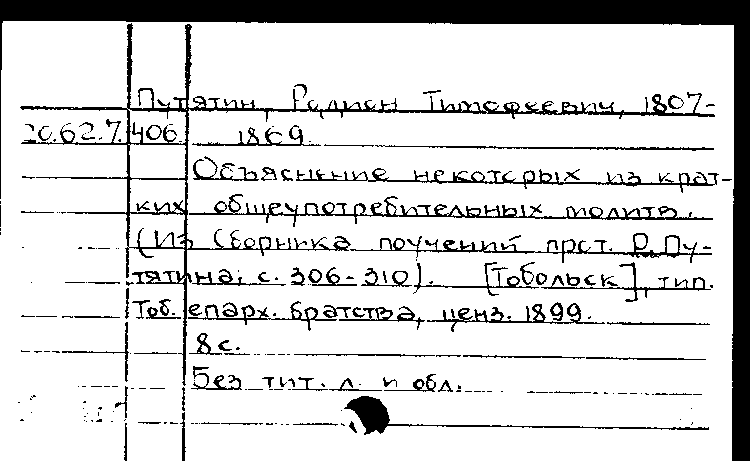 Путятин, Родион Тимофеевич, 1807-
20.62.7.406 1869.
Объяснение некоторых из крат-
ких общеупотребительных молитв.
(Из Сборника поучений прот. Р. Пу-
тятина; с. 306-310). [Тобольск], тип.
Тоб. епарх. братства, ценз. 1899.
8 с.
Без тит. л. и обл.